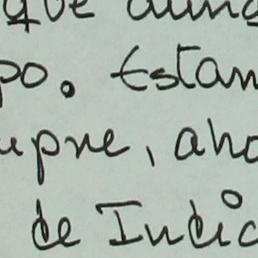 que aun
po. Estam
upre, aho
de Indic